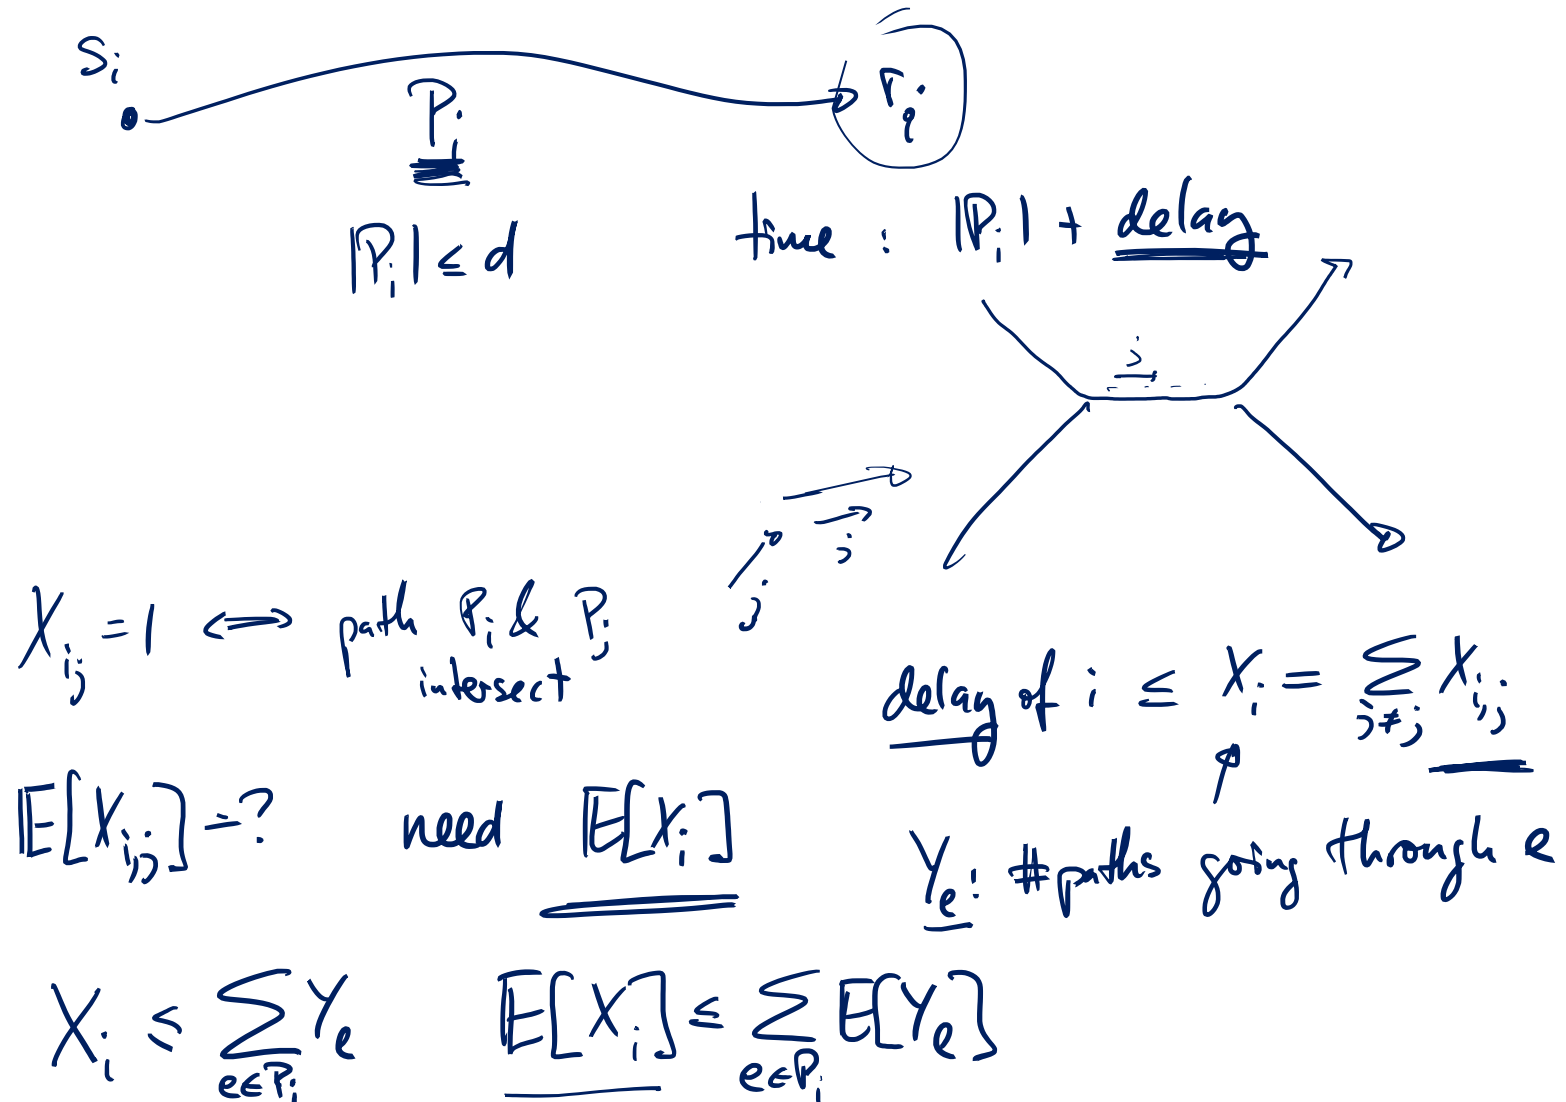 S_i
P_i
r_i
|P_i| ≤ d
time : |P_i| + delay
i
j
i
X_{ij} = 1 ⟺ path P_i & P_j
intersect
delay of i ≤ X_i = ∑_{j≠j} X_{i,j}
E[X_{i,j}] = ? need E[X_i]
Y_e: # paths going through e
X_i ≤ ∑_{e∈P_i} Y_e E[X_i] ≤ ∑_{e∈P_i} E[Y_e]